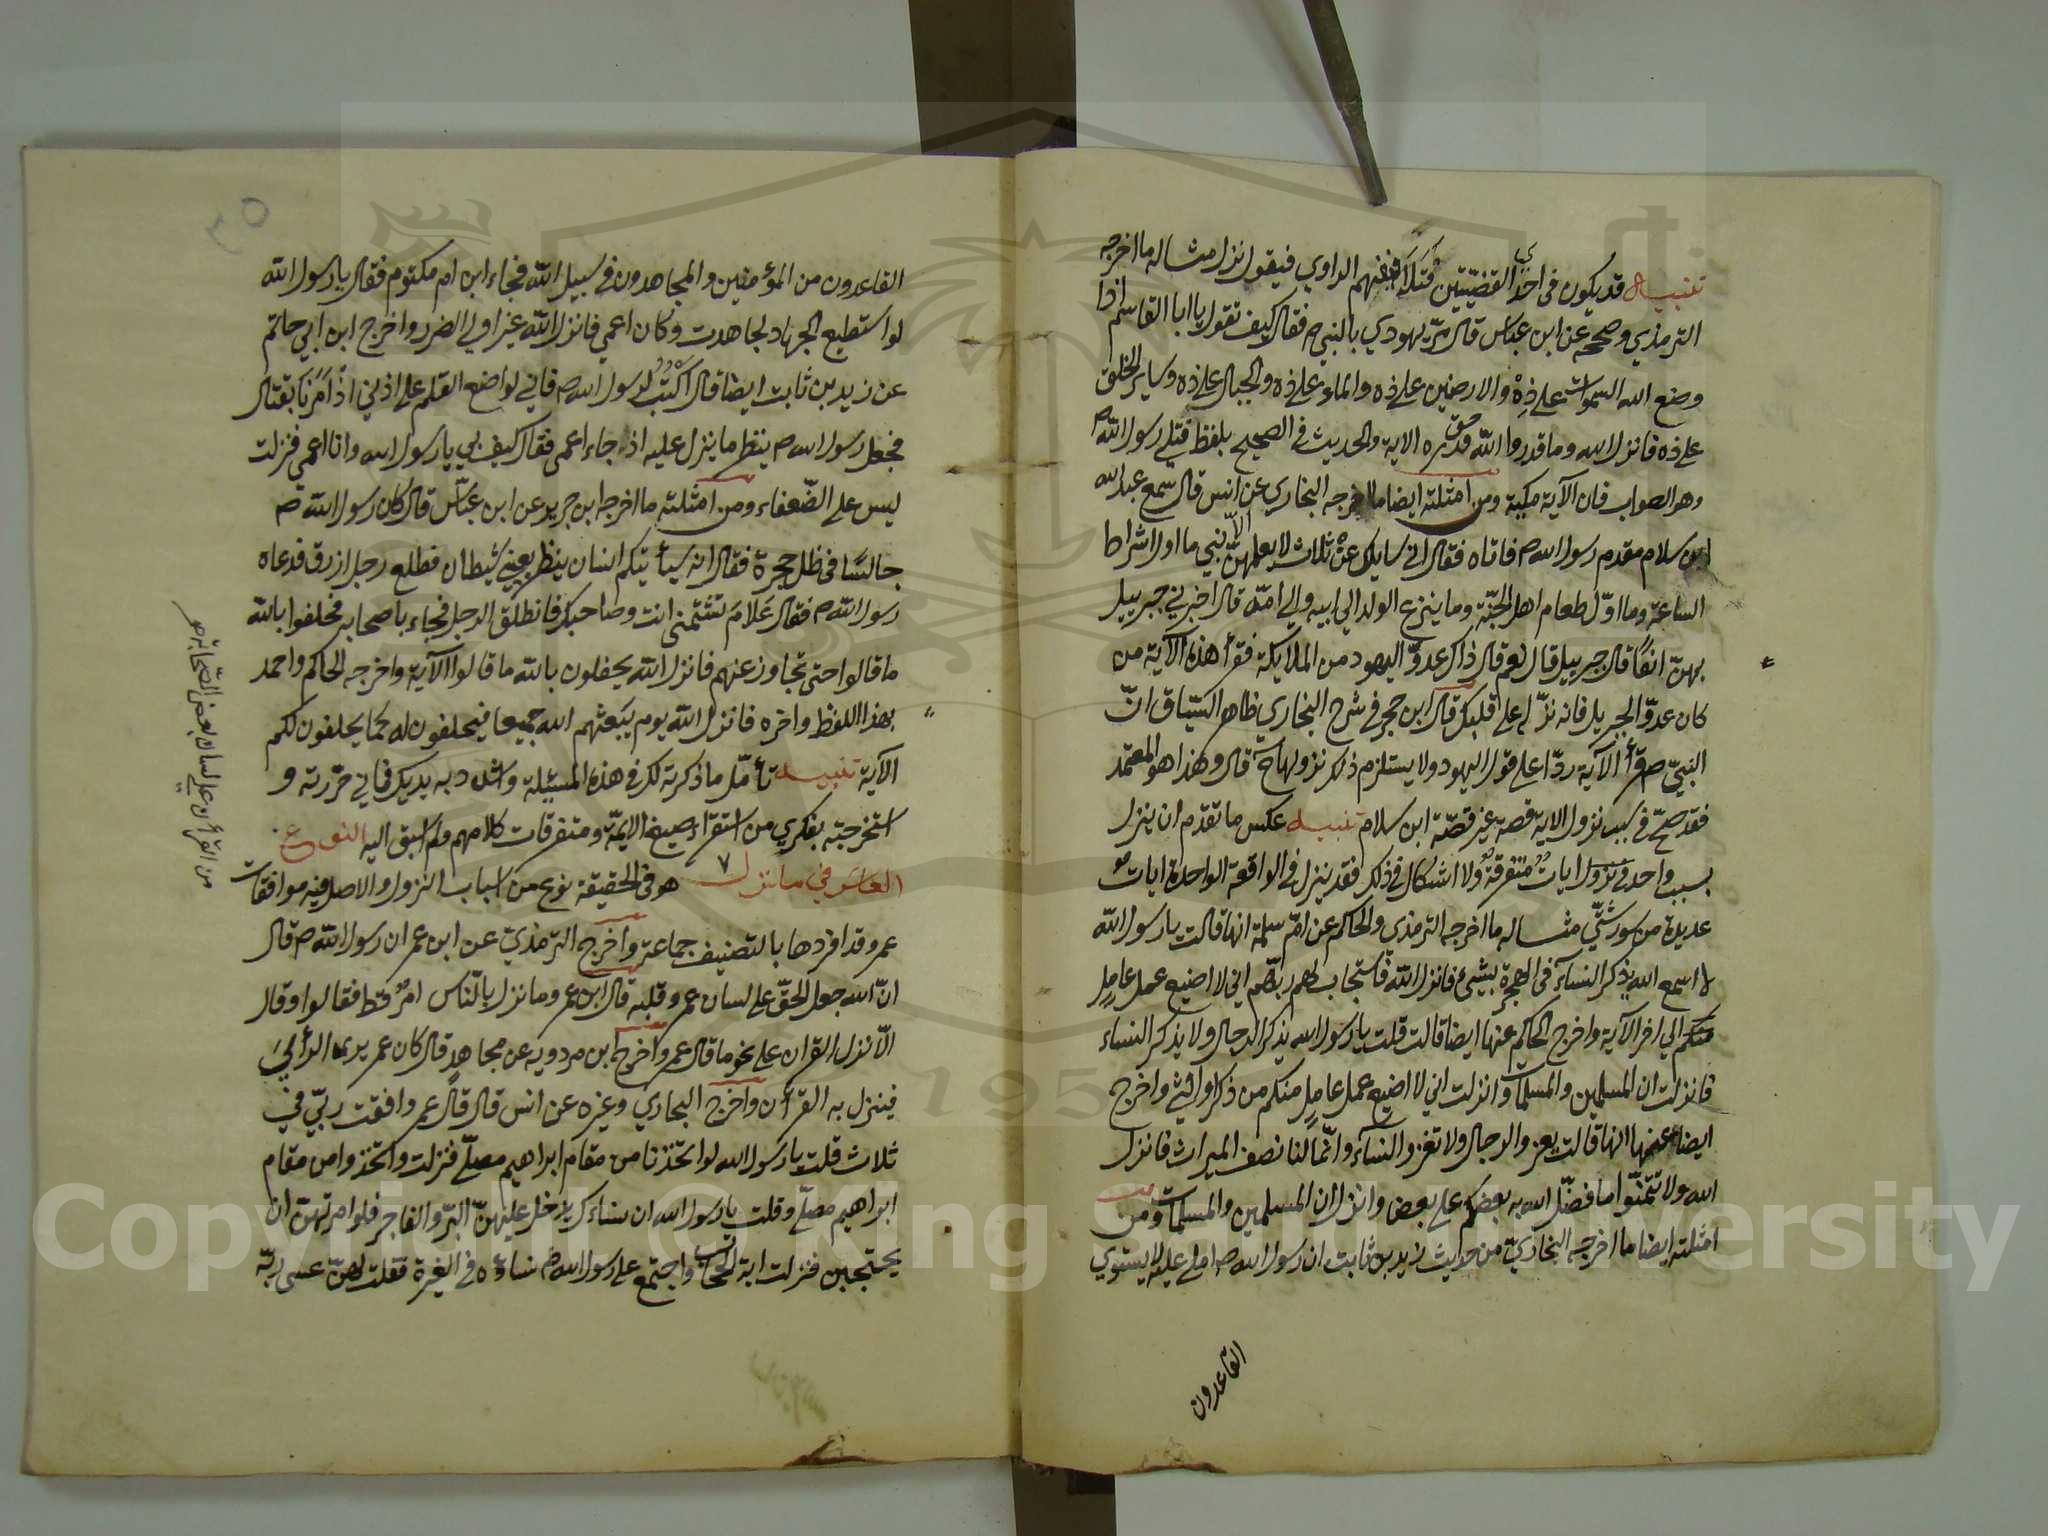 تنبيه قد يكون في احدى القضيتين فتلا فيفهم الراوي فيقول نزل مثاله ما اخرجه
الترمذي وصححه عن ابن عباس قال مرّ يهودي بالنبي ص فقال كيف تقول يا ابا القاسم اذا
وضع الله السموات على ذِه والارضين على ذه والماء على ذه والجبال على ذه وساير الخلق
على ذه فانزل الله وما قدروا الله حق قدره الاية والحديث في الصحيح بلفظ فتلى رسول الله ص
وهو الصواب فان الآية مكية ومن امثلته ايضا ما اخرجه البخاري عن انس قال سمع عبد الله
ابن سلام مقدم رسول الله ص فاتاه فقال اني سايلك عن ثلاث لا يعلمهنّ الّا نبي ما اول اشراط
الساعة وما اوّل طعام اهل الجنّة وما ينزع الولد الى ابيه والى امّه قال اخبرني جبرييل
بهنّ انفًا قال جبرييل قال نعم قال ذاك عدوّ اليهود من الملايكة فقرأ هذه الآية من
كان عدوّا لجبريل فانه نزّله على قلبك قال ابن حجر في شرح البخاري ظاهر السّياق انّ
النبيّ ص قرأ الآية ردّا على قول اليهود ولا يستلزم ذلك نزولها ح قال وهذا هو المعتمد
فقد صحّ في سبب نزول الاية قصة غير قصّة ابن سلام تنبيه عكس ما تقدم ان ينزل
بسبب واحد في نزول ايات متفرقة ولا اشكال في ذلك فقد ينزل في الواقعة الواحدة ايات
عديدة من سور شتّي مثاله ما اخرجه الترمذي والحاكم عن امّ سلمة انها قالت يا رسول الله
لا اسمع الله يذكر النسآء في الهجرة بشيء فانزل الله فاستجاب لهم ربّهم اني لا اضيع عمل عاملٍ
منكم الى اخر الآية واخرج الحاكم عنها ايضا قالت قلت يا رسول الله يذكر الرجال ولا يذكر النساء
فانزلت ان المسلمين والمسلمات وانزلت اني لا اضيع عمل عاملٍ منكم من ذكر او انثى واخرج
ايضا عنها انها قالت يعزو الرجال ولا تغزو النسآء وانّما لنا نصف الميراث فانزل
الله ولا تتمنّوا ما فضّل الله به بعضكم على بعض وانزل ان المسلمين والمسلمات ومن
امثلته ايضا ما اخرجه البخاريّ من حديث زيد بن ثابت ان رسول الله ص املى عليه لا يستوي
القاعدون
القاعدون من المؤمنين والمجاهدون في سبيل الله فجاء ابن ام مكتوم فقال يا رسول الله
لو استطيع الجهاد لجاهدت وكان اعمي فانزل الله غير اولي الضرر واخرج ابن ابي حاتم
عن زيد بن ثابت ايضا قال كنت اكتب لرسول الله ص فاني لواضع القلم على اذني اذ امر بالقتال
فجعل رسول الله ص ينظر ما ينزل عليه اذ جاء اعمى فقال كيف بي يا رسول الله وانا اعمى فنزلت
ليس على الضّعفاء ومن امثلته ما اخرجه ابن جرير عن ابن عبّاس قال كان رسول الله ص
جالسًا في ظل حجرة فقال انه سيأتيكم انسان ينظر بعيني شيطان فطلع رجل ازرق فدعاه
رسول الله ص فقال علامَ تشتمني انت وصاحبك فانطلق الرجل فجاء باصحابه فحلفوا بالله
ما قالوا حتى تجاوز عنهم فانزل الله يحلفون بالله ما قالوا الآية واخرجه الحاكم واحمد
بهذا اللفظ واخره فانزل الله يوم يبعثهم الله جميعا فيحلفون له كما يحلفون لكم
الآية تنبيه تأمّل ما ذكرته لك في هذه المسئلة واشدد به يديك فاني حرّرته و
استخرجته بفكري من استقراء صيغ الايمّة ومتفرقات كلامهم ولم اسبق اليه النوع
العاشر في ما نزل هو في الحقيقة نوع من اسباب النزول والاصل فيه موافقات
من القرآن على لسان بعض الصّحابة
عمر وقد افردها بالتصنيف جماعة واخرج الترمذيّ عن ابن عمر ان رسول الله ص قال
انّ الله جعل الحقّ على لسان عمر وقلبه قال ابن عمر وما نزل بالنّاس امرٌ قط فقالوا وقال
الّا نزل القرآن على نحو ما قال عمر واخرج ابن مردويه عن مجاهد قال كان عمر يرى الرأي
فينزل به القرآن واخرج البخاري وغيره عن انس قال قال عمر وافقت ربّي في
ثلاث قلت يا رسول الله لو اتخذنا من مقام ابراهيم مصلّى فنزلت واتّخذوا من مقام
ابراهيم مصلّى وقلت يا رسول الله ان نساءك يدخل عليهنّ البرّ والفاجر فلو امرتهنّ ان
يحتجبن فنزلت اية الحجاب واجتمع على رسول الله ص نساؤه في الغيرة فقلت لهنّ عسى ربّه
Copyright © King Saud University
195